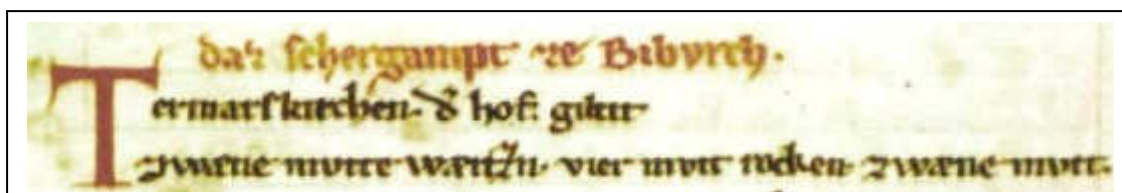 daz schergampt ze Biburch.
Termarskirchen. d͛ hof. giltit
zwæne mutte wæitzn. vier mutt rocken. zwæne mutt.